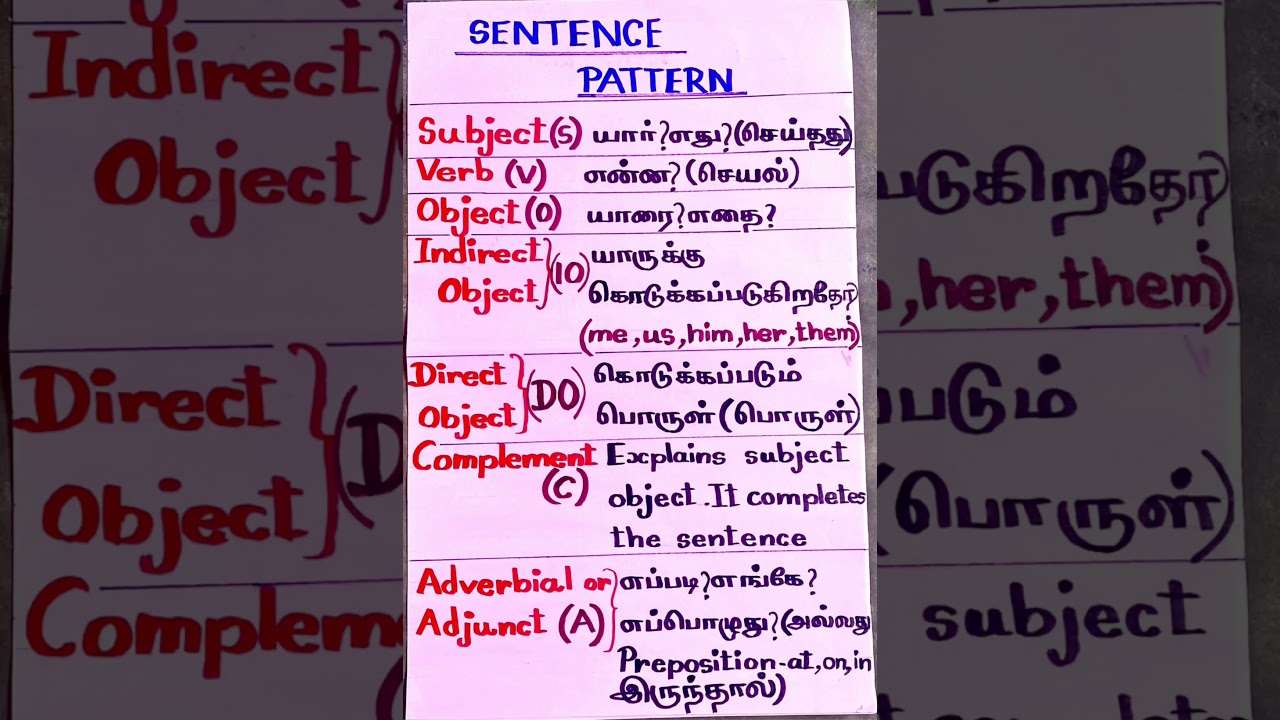 SENTENCE
PATTERN
Subject(S) யார்?எது?(செய்தது)
Verb (V) என்ன?(செயல்)
Object(O) யாரை?எதை?
Indirect Object (IO) யாருக்கு
கொடுக்கப்படுகிறதோ?
(me, us, him, her, them)
Direct Object (DO) கொடுக்கப்படும்
பொருள் (பொருள்)
Complement (C) Explains subject
object. It completes
the sentence
Adverbial or Adjunct (A) எப்படி?எங்கே?
எப்பொழுது?(அல்லது
Preposition-at, on, in
இருந்தால்)